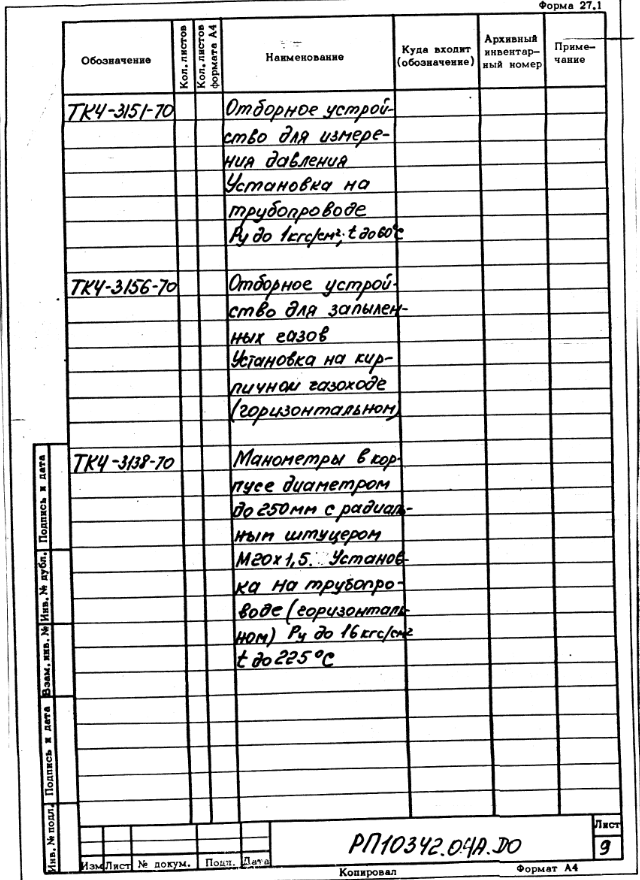 Форма 27.1
Обозначение
Кол. листов
Кол. листов формата А4
Наименование
Куда входит (обозначение)
Архивный инвентар-ный номер
Приме-чание
ТК4-3151-70 Отборное устрой-
ство для измере-
ния давления
Установка на
трубопроводе
Ру до 1кгс/см²; t до 60°С
ТК4-3156-70 Отборное устрой-
ство для запылен-
ных газов
Установка на кир-
пичном газоходе
(горизонтальном)
ТК4-3138-70 Манометры в кор-
пусе диаметром
до 250мм с радиаль-
ным штуцером
М20х1,5. Установ-
ка на трубопро-
воде (горизонталь-
ном) Ру до 16 кгс/см²
t до 225°С
Инв. № подл.
Подпись и дата
Взам. инв. №
Инв. № дубл.
Подпись и дата
Изм Лист № докум. Подп. Дата
РП10342.04А.ДО
Лист
9
Копировал
Формат А4